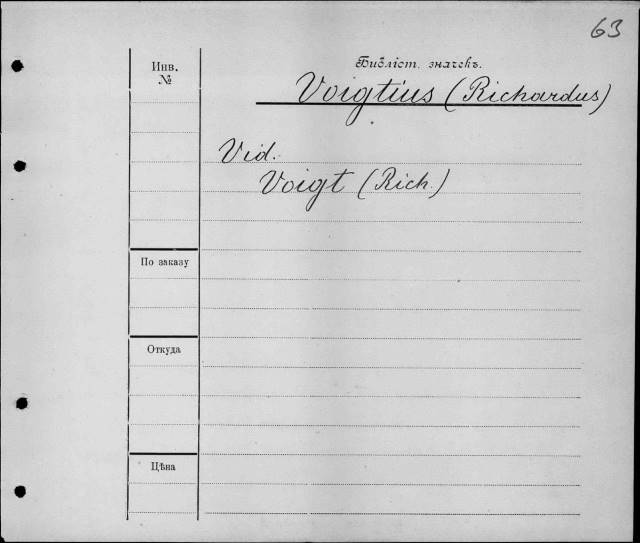 63
Инв.
№
Библіст. значекъ.
Voigtius (Richardus)
Vid.
Voigt (Rich.)
По заказу
Откуда
Цѣна